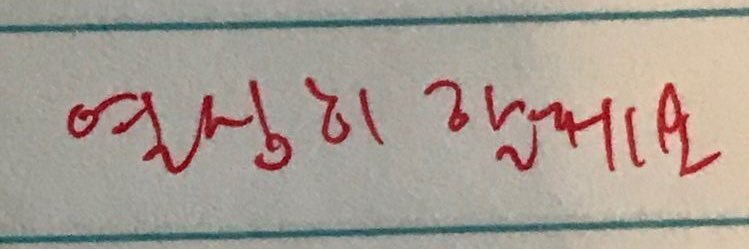 열심히 할게요